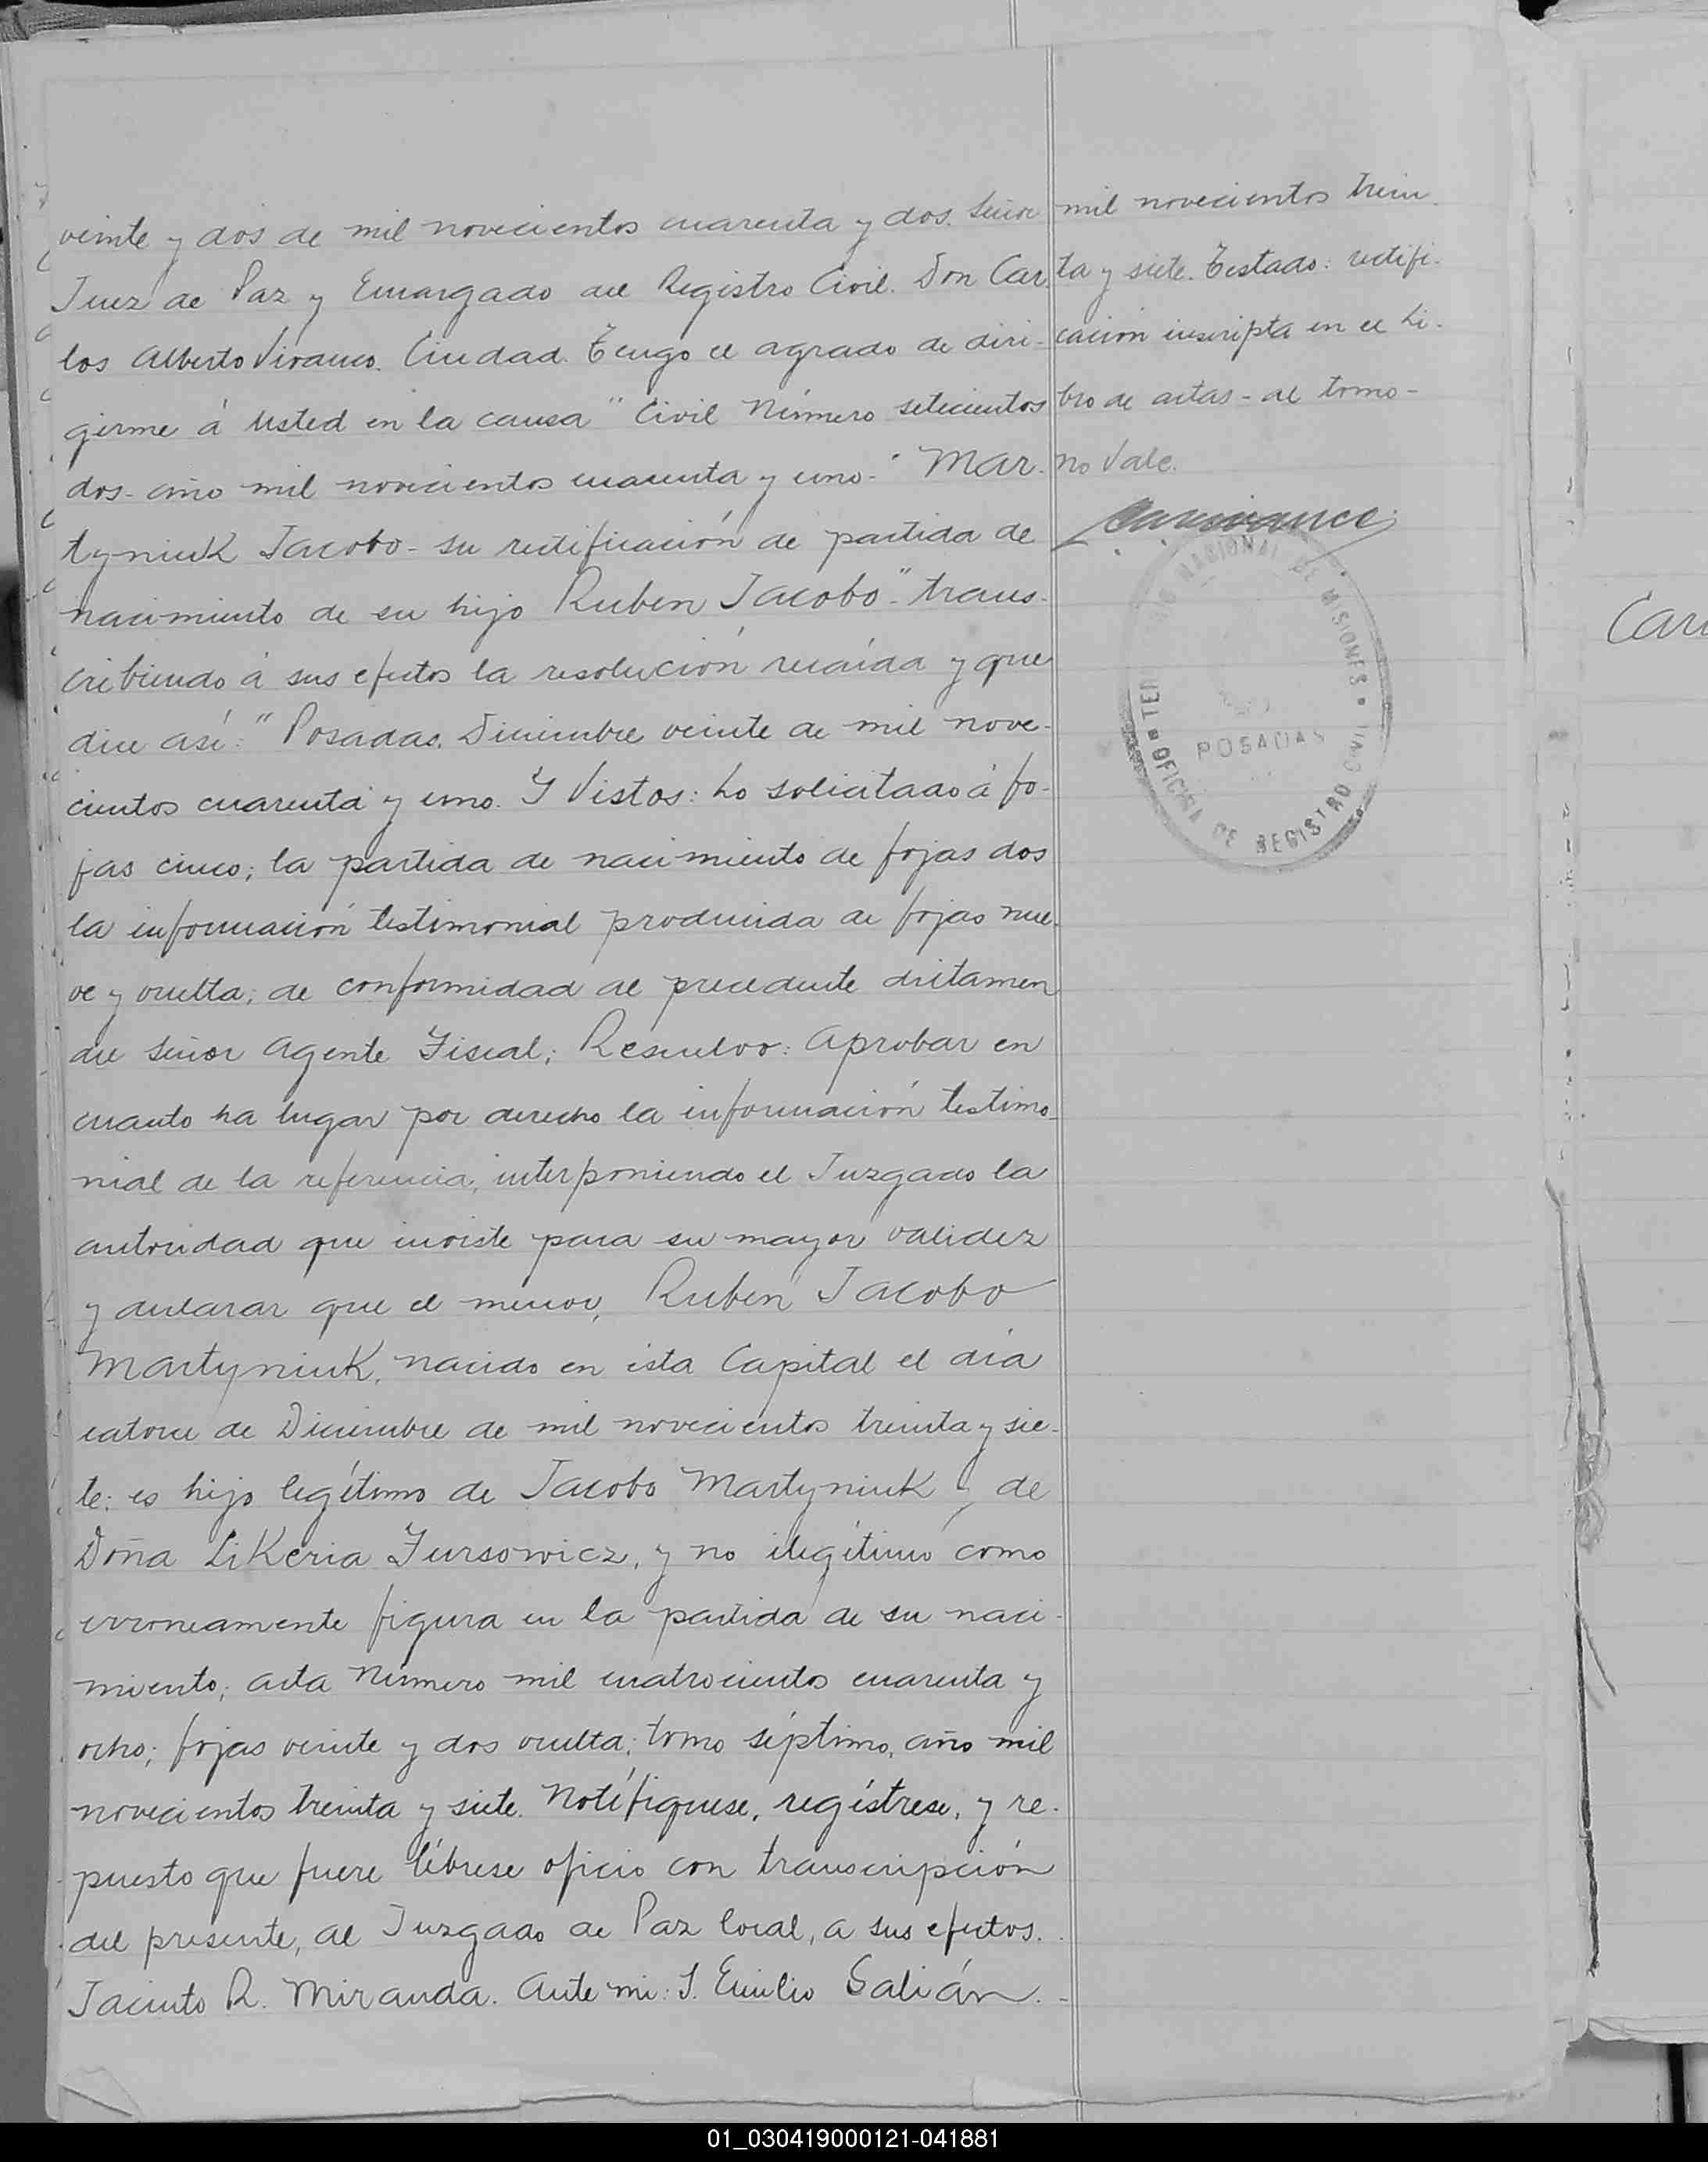 veinte y dos de mil novecientos cuarenta y dos. Señor
Juez de Paz y Encargado del Registro Civil. Don Car-
los Alberto Vivanco. Ciudad. Tengo el agrado de diri-
girme á Usted en la causa "Civil Número setecientos
dos- año mil novecientos cuarenta y uno-" Mar-
tyniuk Jacobo- su rectificación de partida de
nacimiento de su hijo Ruben Jacobo-" trans-
cribiendo á sus efectos la resolución recaída y que
dice así: "Posadas, Diciembre veinte de mil nove-
cientos cuarenta y uno. Y Vistos: Lo solicitado á fo-
jas cinco; la partida de nacimiento de fojas dos
la información testimonial producida de fojas nue-
ve y vuelta; de conformidad al precedente dictamen
del Señor Agente Fiscal; Resuelvo: Aprobar en
cuanto ha lugar por derecho la información testimo-
nial de la referencia, interponiendo el Juzgado la
autoridad que inviste para su mayor validez
y declarar que el menor, Ruben Jacobo
Martyniuk, nacido en ésta Capital el día
catorce de Diciembre de mil novecientos treinta y sie-
te: es hijo legítimo de Jacobo Martyniuk y de
Doña LiKeria Fursowicz, y no ilegítimo como
erroneamente figura en la partida de su naci-
miento; acta Número mil cuatrocientos cuarenta y
ocho; fojas veinte y dos vuelta; tomo séptimo, año mil
novecientos treinta y siete. Notífiquese, regístrese, y re-
puesto que fuere líbrese oficio con transcripción
del presente, al Juzgado de Paz local, a sus efectos.
Jacinto R. Miranda. Ante mi: J. Emilio Galián.-
mil novecientos trein-
ta y siete. Testado: rectifi-
cación inscripta en el Li-
bro de actas- al tomo-
no Vale.
NACIONAL DE MISIONES
POSADAS
OFICINA DE REGISTRO CIVIL
01_030419000121-041881